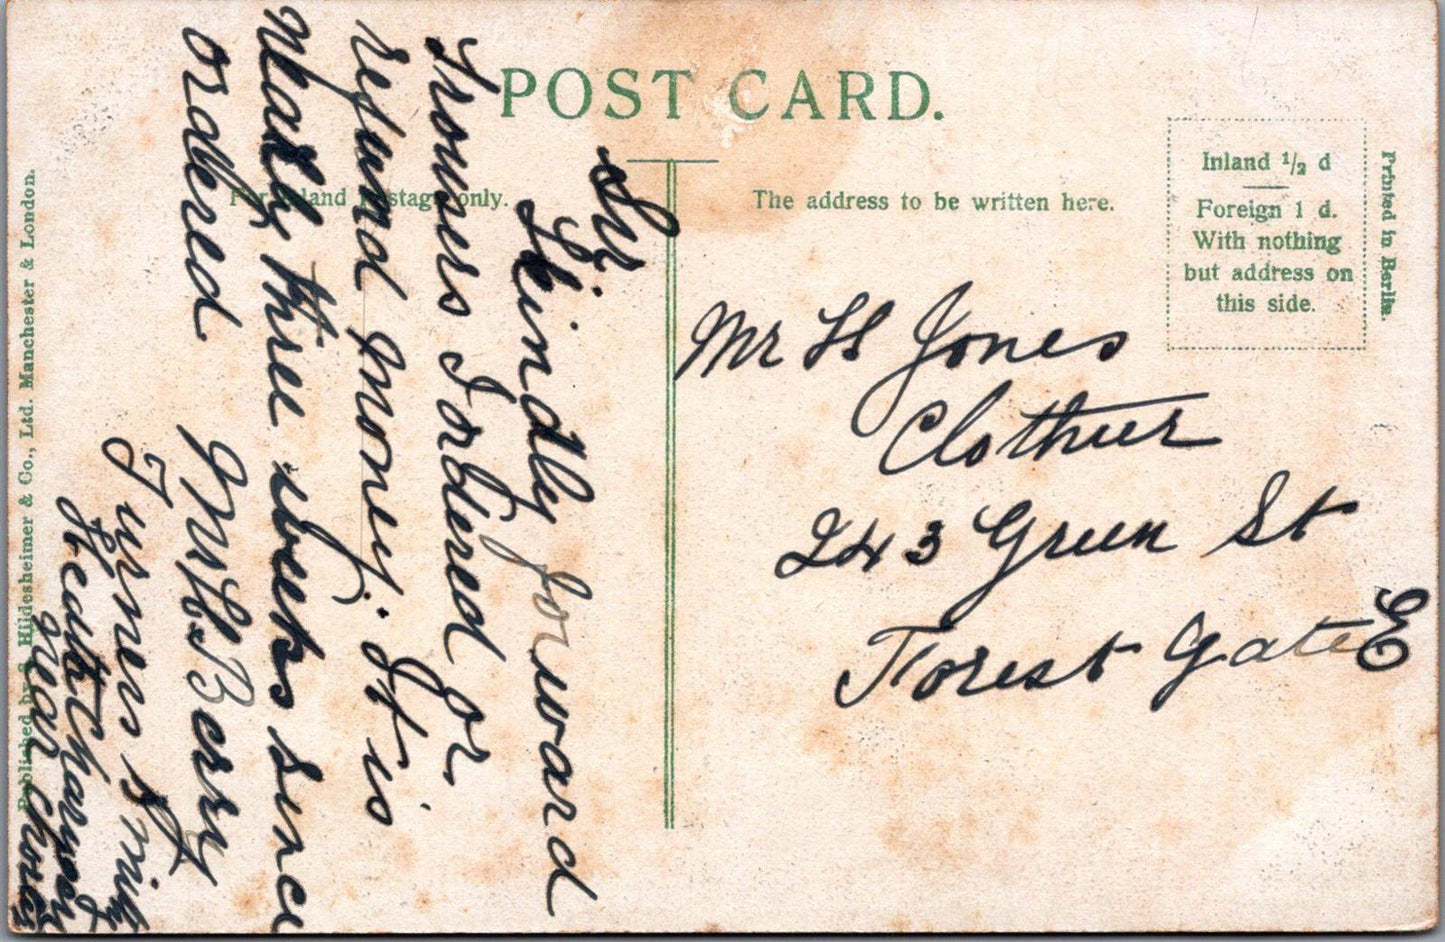 POST CARD.
For Inland Postage only.
The address to be written here.
Inland ½ d
Foreign 1 d.
With nothing
but address on
this side.
Printed in Berlin.
Published by S. Hildesheimer & Co., Ltd. Manchester & London.
Sir
Kindly forward
Trousers I ordered or
refund money. It is
nearly three weeks since
ordered Mrs B erry
Turners
Heath Charnock
near Chorley
Mr H Jones
Clothier
243 Green St
Forest Gate E